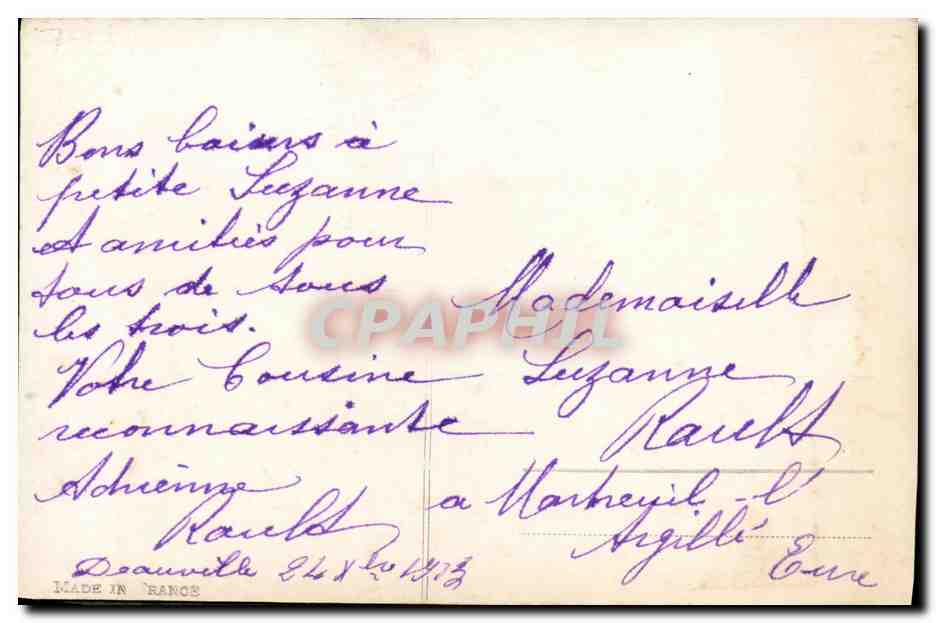 Bons baisers à
petite Suzanne
et amitiés pour
tous de tous
les trois.
Votre Cousine
reconnaissante
Adrienne
Rault
Deauville 24 Xbre
MADE IN FRANCE
Mademoiselle
Suzanne
Rault
a Montreuil-l'
Argillé
Eure
CPAPHIL